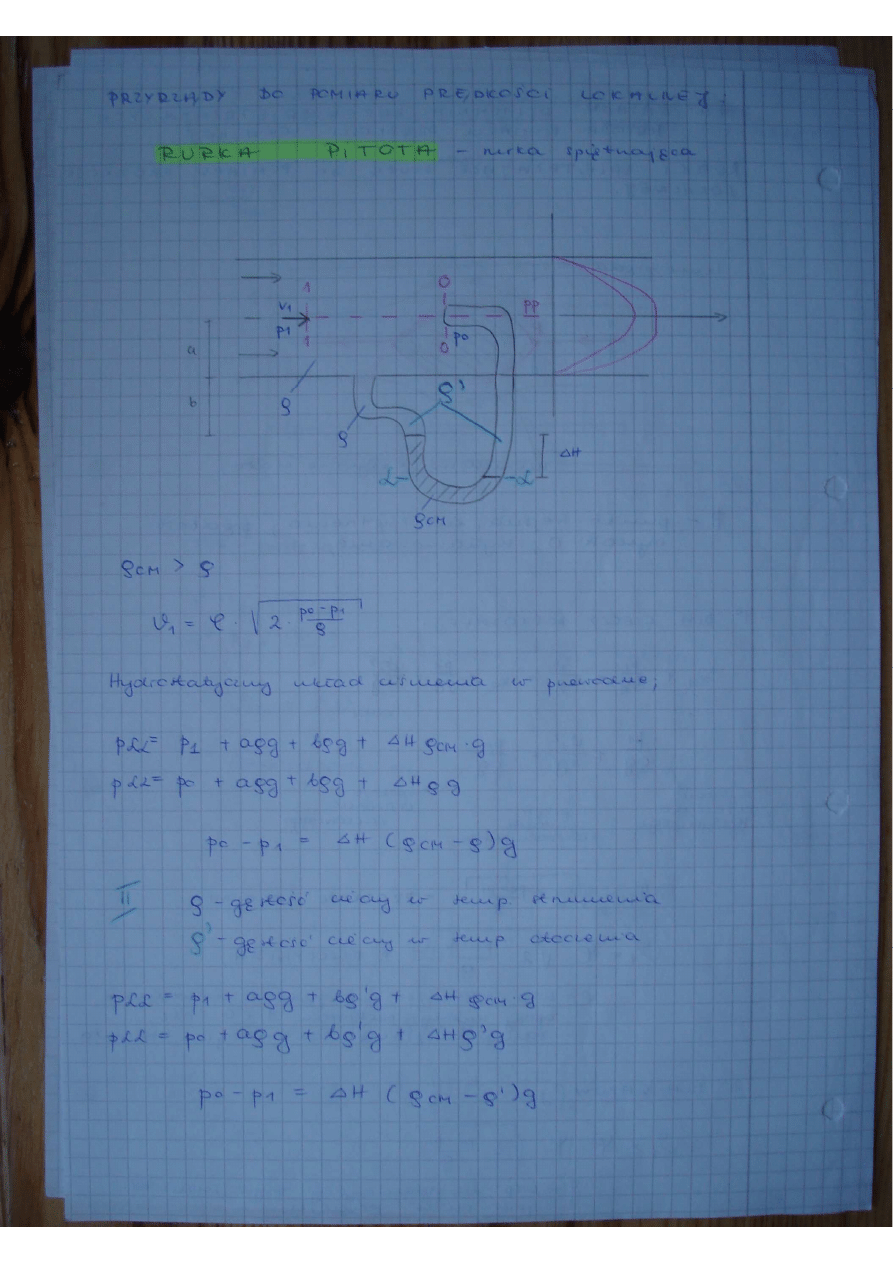 PRZYRZĄDY DO POMIARU PRĘDKOŚCI LOKALNEJ:
RURKA PITOTA - rurka spiętrzająca
1 0 pp
v1
p1 p0
1 0
a
b ρ ρ'
ρ
ΔH
α α
ρcm
ρcm > ρ
v1 = φ · √(2 · (p0-p1)/ρ)
Hydrostatyczny układ ciśnienia w przewodzie;
pαα= p1 + aρg + bρg + ΔHρcm·g
pαα= p0 + aρg + bρg + ΔHρg
p0 - p1 = ΔH (ρcm - ρ)g
II ρ - gęstość cieczy w temp. strumienia
ρ' - gęstość cieczy w temp otoczenia
pαα = p1 + aρg + bρ'g + ΔHρcm·g
pαα = p0 + aρg + bρ'g + ΔHρ'g
p0 - p1 = ΔH (ρcm - ρ')g